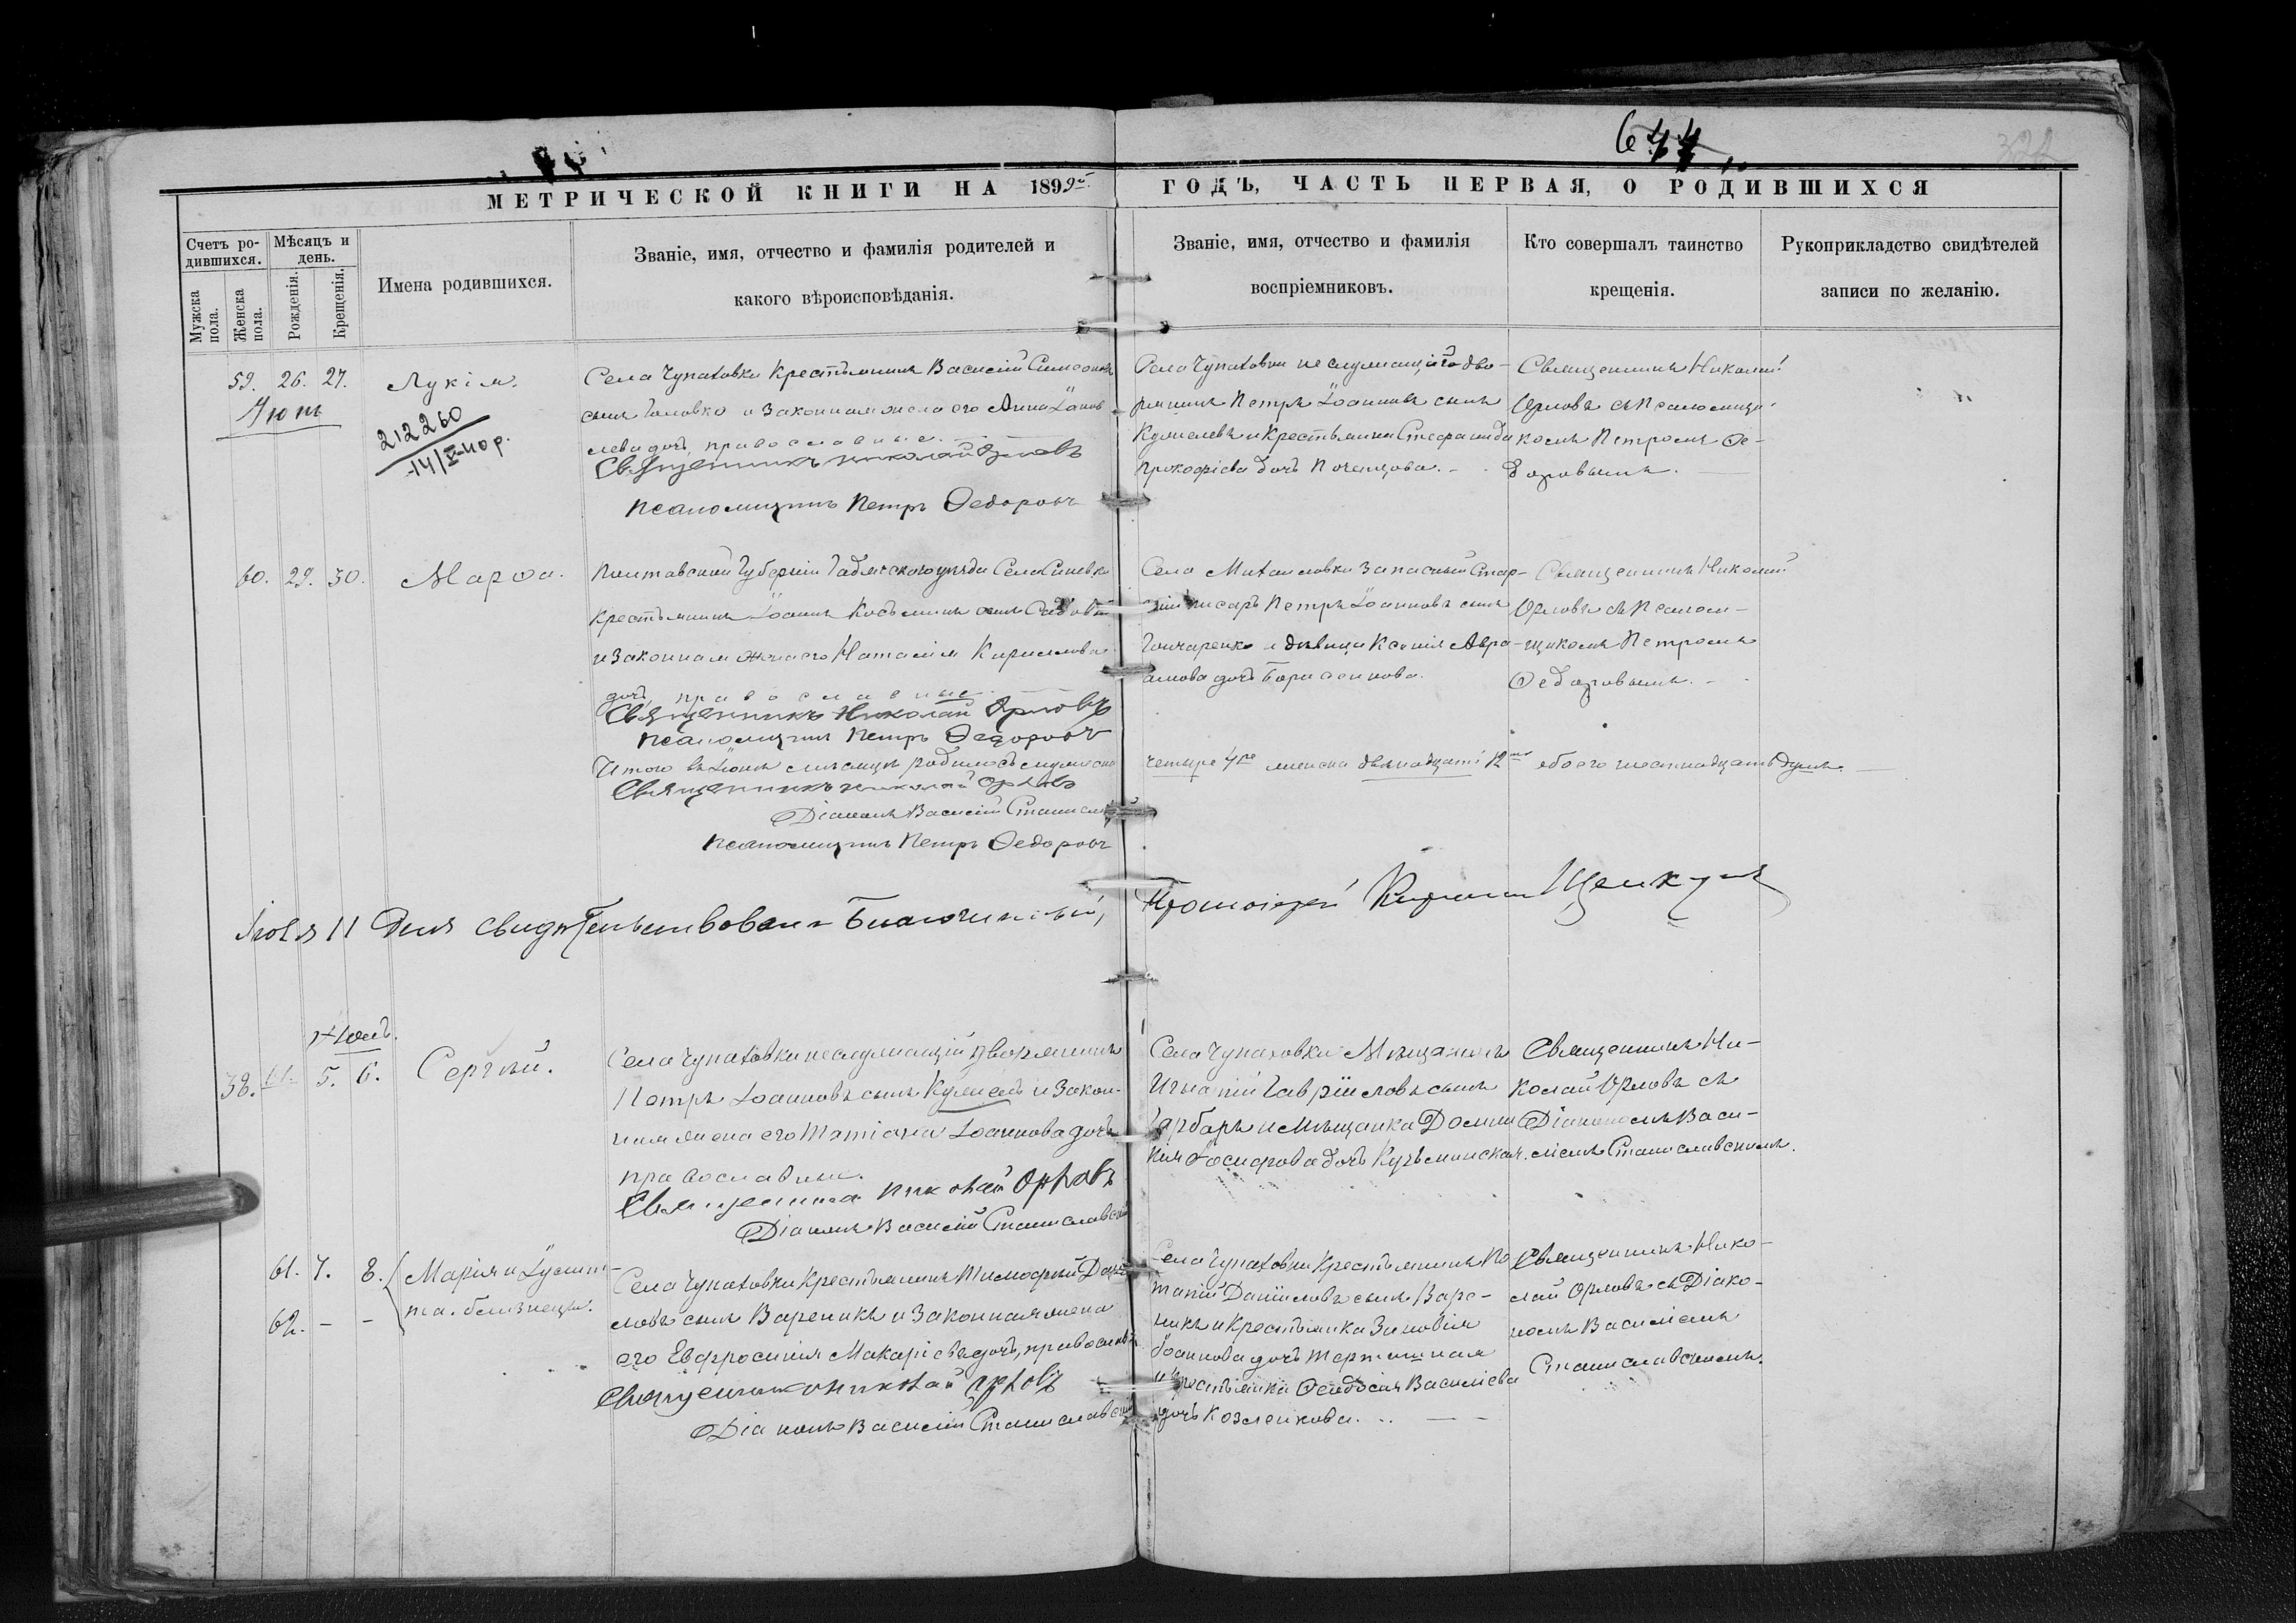 644
322
МЕТРИЧЕСКОЙ КНИГИ НА 1899й ГОДЪ, ЧАСТЬ ПЕРВАЯ, О РОДИВШИХСЯ
Счетъ ро-
дившихся.
Мужска пола.
Женска пола.
Мѣсяцъ и
день.
Рожденія.
Крещенія.
Имена родившихся.
Званіе, имя, отчество и фамилія родителей и
какого вѣроисповѣданія.
Званіе, имя, отчество и фамилія
воспріемниковъ.
Кто совершалъ таинство
крещенія.
Рукоприкладство свидѣтелей
записи по желанію.
59. 26. 27. Лукія.
212260
14/X-
Села Чупаховки Крестьянинъ Василій Симеоновъ
сынъ Головко и Законная жена его Анна
дочь, православные.
Священникъ Николай Орловъ
Псаломщикъ Петръ Ѳедоровъ
Села Чупаховки неслужащій дво-
рянинъ Петръ Іоанновъ сынъ
и Крестьянка Стефанида
Прокофіева дочь
Священникъ Николай
Орловъ съ Псаломщи-
комъ Петромъ Ѳе-
доровымъ.
60. 29. 30. Марѳа.
Полтавской Губерніи Гадячскаго уѣзда Села Синевки
Крестьянинъ Іоаннъ Косьминъ сынъ
и Законная жена его Наталія Кириллова
дочь, православные.
Священникъ Николай Орловъ
Псаломщикъ Петръ Ѳедоровъ
Села Михайловки Запасный Стар-
шій писарь Петръ Іоанновъ сынъ
Гончаренко и дѣвица Ксенія Авра-
амова дочь Борисенкова.
Священникъ Николай
Орловъ съ Псалом-
щикомъ Петромъ
Ѳедоровымъ.
Итого въ Іюнѣ мѣсяцѣ родилось мужеска четыре 4ре женска двѣнадцать 12ть обоего шестнадцать душъ.
Священникъ Николай Орловъ
Діаконъ Василій Станиславскій
Псаломщикъ Петръ Ѳедоровъ
Іюля 11 Дня свидѣтельствовалъ Благочинный, Протоіерей
Іюль.
38. 5. 6. Сергѣй.
Села Чупаховки неслужащій дворянинъ
Петръ Іоанновъ сынъ и Закон-
ная жена его Татіана Іоаннова дочь
православные.
Священникъ Николай Орловъ
Діаконъ Василій Станиславскій
Села Чупаховки Мѣщанинъ
Игнатій Гавріиловъ сынъ
Гарбарь и мѣщанка Домни-
кія Іосифова дочь Кузьминская.
Священникъ Ни-
колай Орловъ съ
Діакономъ Васи-
ліемъ Станиславскимъ.
61. 7. 8. Марія и Іусти-
62. - - на. близнецы.
Села Чупаховки Крестьянинъ Тимофей Даніи-
ловъ сынъ Вареникъ и Законная жена
его Евфросинія Макаріева дочь, православные
Священникъ Николай Орловъ
Діаконъ Василій Станиславскій
Села Чупаховки Крестьянинъ По-
тапій Даніиловъ сынъ Варе-
никъ и Крестьянка Зиновія
Іоаннова дочь
и Крестьянка Ѳеодосія Василіева
дочь Козленкова.
Священникъ Нико-
лай Орловъ съ Діако-
номъ Василіемъ
Станиславскимъ.